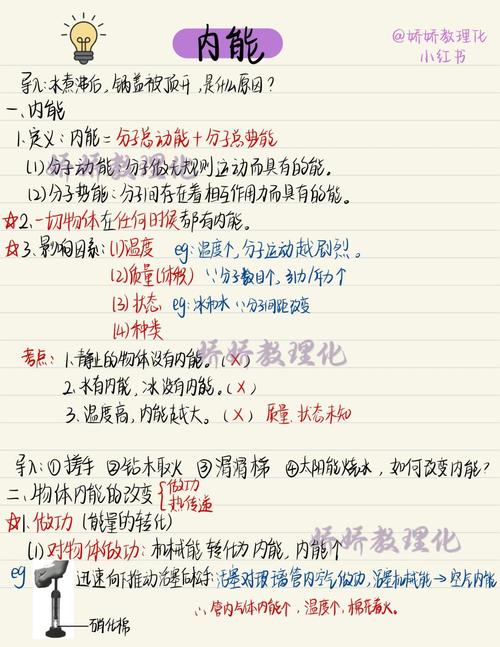 内能
@娇娇教理化
小红书
导入:水煮沸后,锅盖被顶开,是什么原因?
一、内能
1.定义:内能=分子总动能+分子总势能
(1)分子动能:分子做无规则运动而具有的能。
(2)分子势能:分子间存在着相互作用力而具有的能。
娇娇教理化
☆2.一切物体在任何时候都有内能。
☆3.影响因素:(1)温度 eg:温度↑,分子运动越剧烈。
(2)质量(体积) ∵分子数目↑,引力/斥力↑
(3)状态 eg:冰和水 ∵分子间距改变
(4)种类
娇娇教理化
考点:1.静止的物体没有内能。(×)
2.水有内能,冰没有内能。(×)
3.温度高,内能越大。(×) 质量、状态未知
导入:①搓手 ②钻木取火 ③滑滑梯 ④太阳能烧水,如何改变内能?
二、物体内能的改变{做功
热传递
☆1.做功(能量的转化)
娇娇教理化
(1)对物体做功:机械能转化为内能,内能↑
eg 迅速向下推动活塞后松手:活塞对玻璃管内空气做功,活塞机械能→空气内能
∴管内气体内能↑,温度↑,棉花着火。
硝化棉